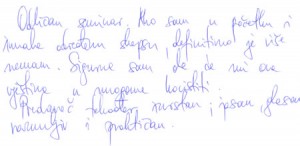 Odličan seminar. Ako sam u početku i
imala određenu skepsu, definitivno je više
nemam. Sigurna sam da će mi ova
vještina u mnogome koristiti.
Predavač također, izvrstan, jasan, glasan
razumljiv i praktičan.